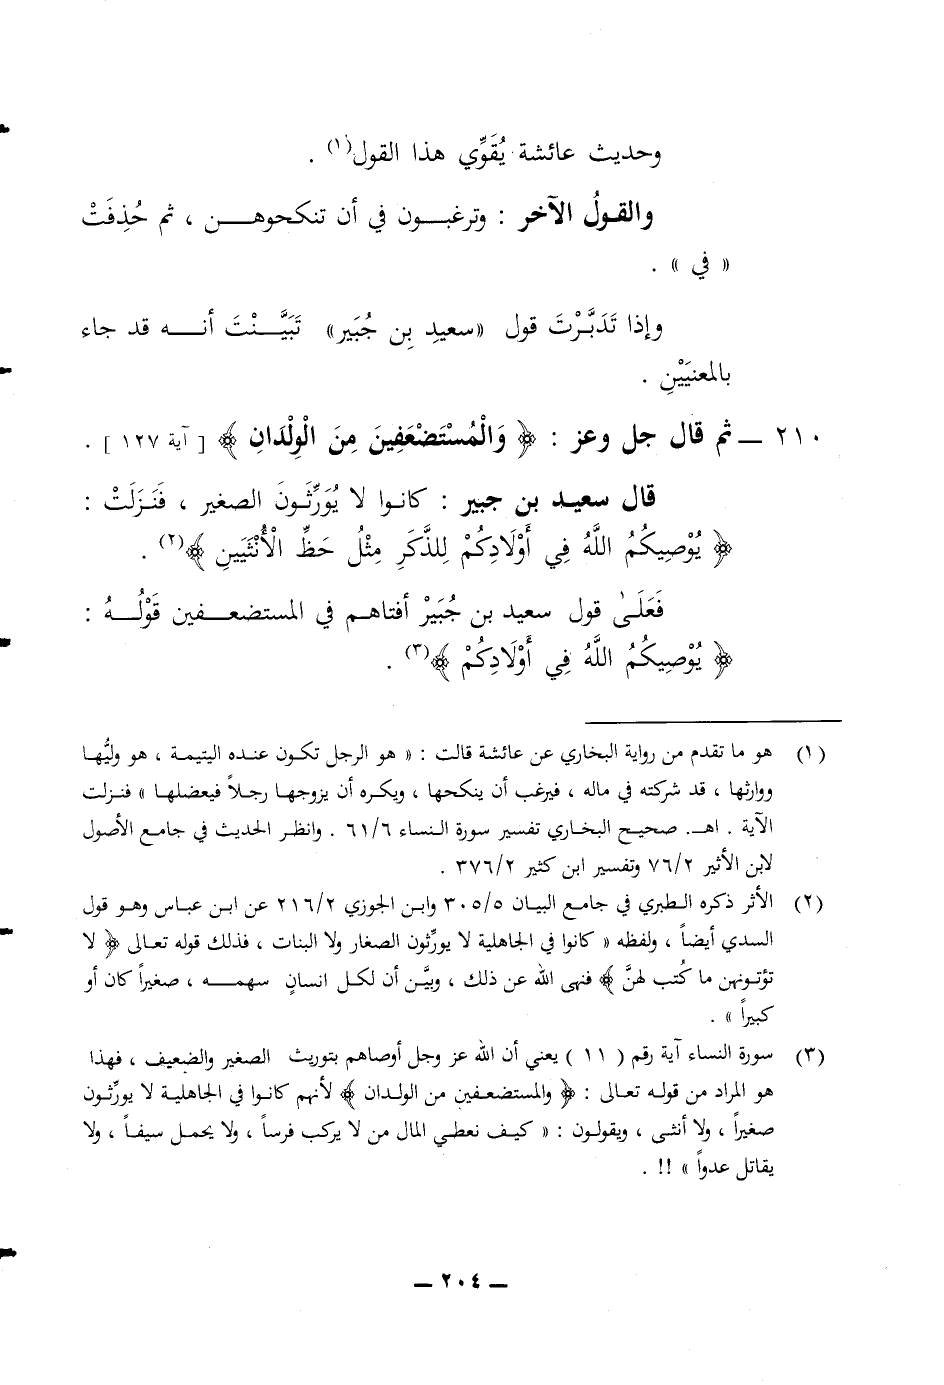 وحديث عائشة يُقَوِّي هذا القول(١) .
والقولُ الآخر : وترغبــون في أن تنكحوهــن ، ثم حُذِفَتْ
« في » .
وإذا تَدَبَّرْتَ قول «سعيدِ بنِ جُبَير» تَبَيَّــنْتَ أنــه قد جاء
بالمعنيَيْنِ .
٢١٠ ــ ثم قال جل وعز : ﴿ وَالْمُسْتَضْعَفِينَ مِنَ الْوِلْدَانِ ﴾ [ آية ١٢٧ ] .
قال سعيد بن جبير : كانوا لا يُوَرِّثُونَ الصغير ، فَنَزَلَتْ :
﴿ يُوْصِيكُمُ اللَّهُ فِي أَوْلَادِكُمْ لِلذَّكَرِ مِثْلُ حَظِّ الْأُنْثَيَينِ ﴾(٢) .
فَعَلَىٰ قول سعيد بن جُبَيَرْ أفتاهم في المستضعفين قَوْلُــهُ :
﴿ يُوْصِيكُمُ اللَّهُ فِي أَوْلَادِكُمْ ﴾(٣) .
(١) هو ما تقدم من رواية البخاري عن عائشة قالت : « هو الرجل تكون عنده اليتيمة ، هو وليُّها
ووارثها ، قد شركته في ماله ، فيرغب أن ينكحها ، ويكره أن يزوجها رجلاً فيعضلها » فنزلت
الآية . اهـ. صحيح البخاري تفسير سورة النساء ٦١/٦ . وانظر الحديث في جامع الأصول
لابن الأثير ٧٦/٢ وتفسير ابن كثير ٣٧٦/٢ .
(٢) الأثر ذكره الطبري في جامع البيان ٣٠٥/٥ وابن الجوزي ٢١٦/٢ عن ابن عباس وهو قول
السدي أيضاً ، ولفظه « كانوا في الجاهلية لا يورِّثون الصغار ولا البنات ، فذلك قوله تعالى ﴿ لا
تؤتونهن ما كُتب لهنَّ ﴾ فنهى الله عن ذلك ، وبيَّن أن لكل انسانٍ سهمــه ، صغيراً كان أو
كبيراً » .
(٣) سورة النساء آية رقم ( ١١ ) يعني أن الله عز وجل أوصاهم بتوريث الصغير والضعيف ، فهذا
هو المراد من قوله تعالى : ﴿ والمستضعفين من الولدان ﴾ لأنهم كانوا في الجاهلية لا يورِّثون
صغيراً ، ولا أنثى ، ويقولون : « كيف نعطي المال من لا يركب فرساً ، ولا يحمل سيفاً ، ولا
يقاتل عدواً » !! .
ــ ٢٠٤ ــ